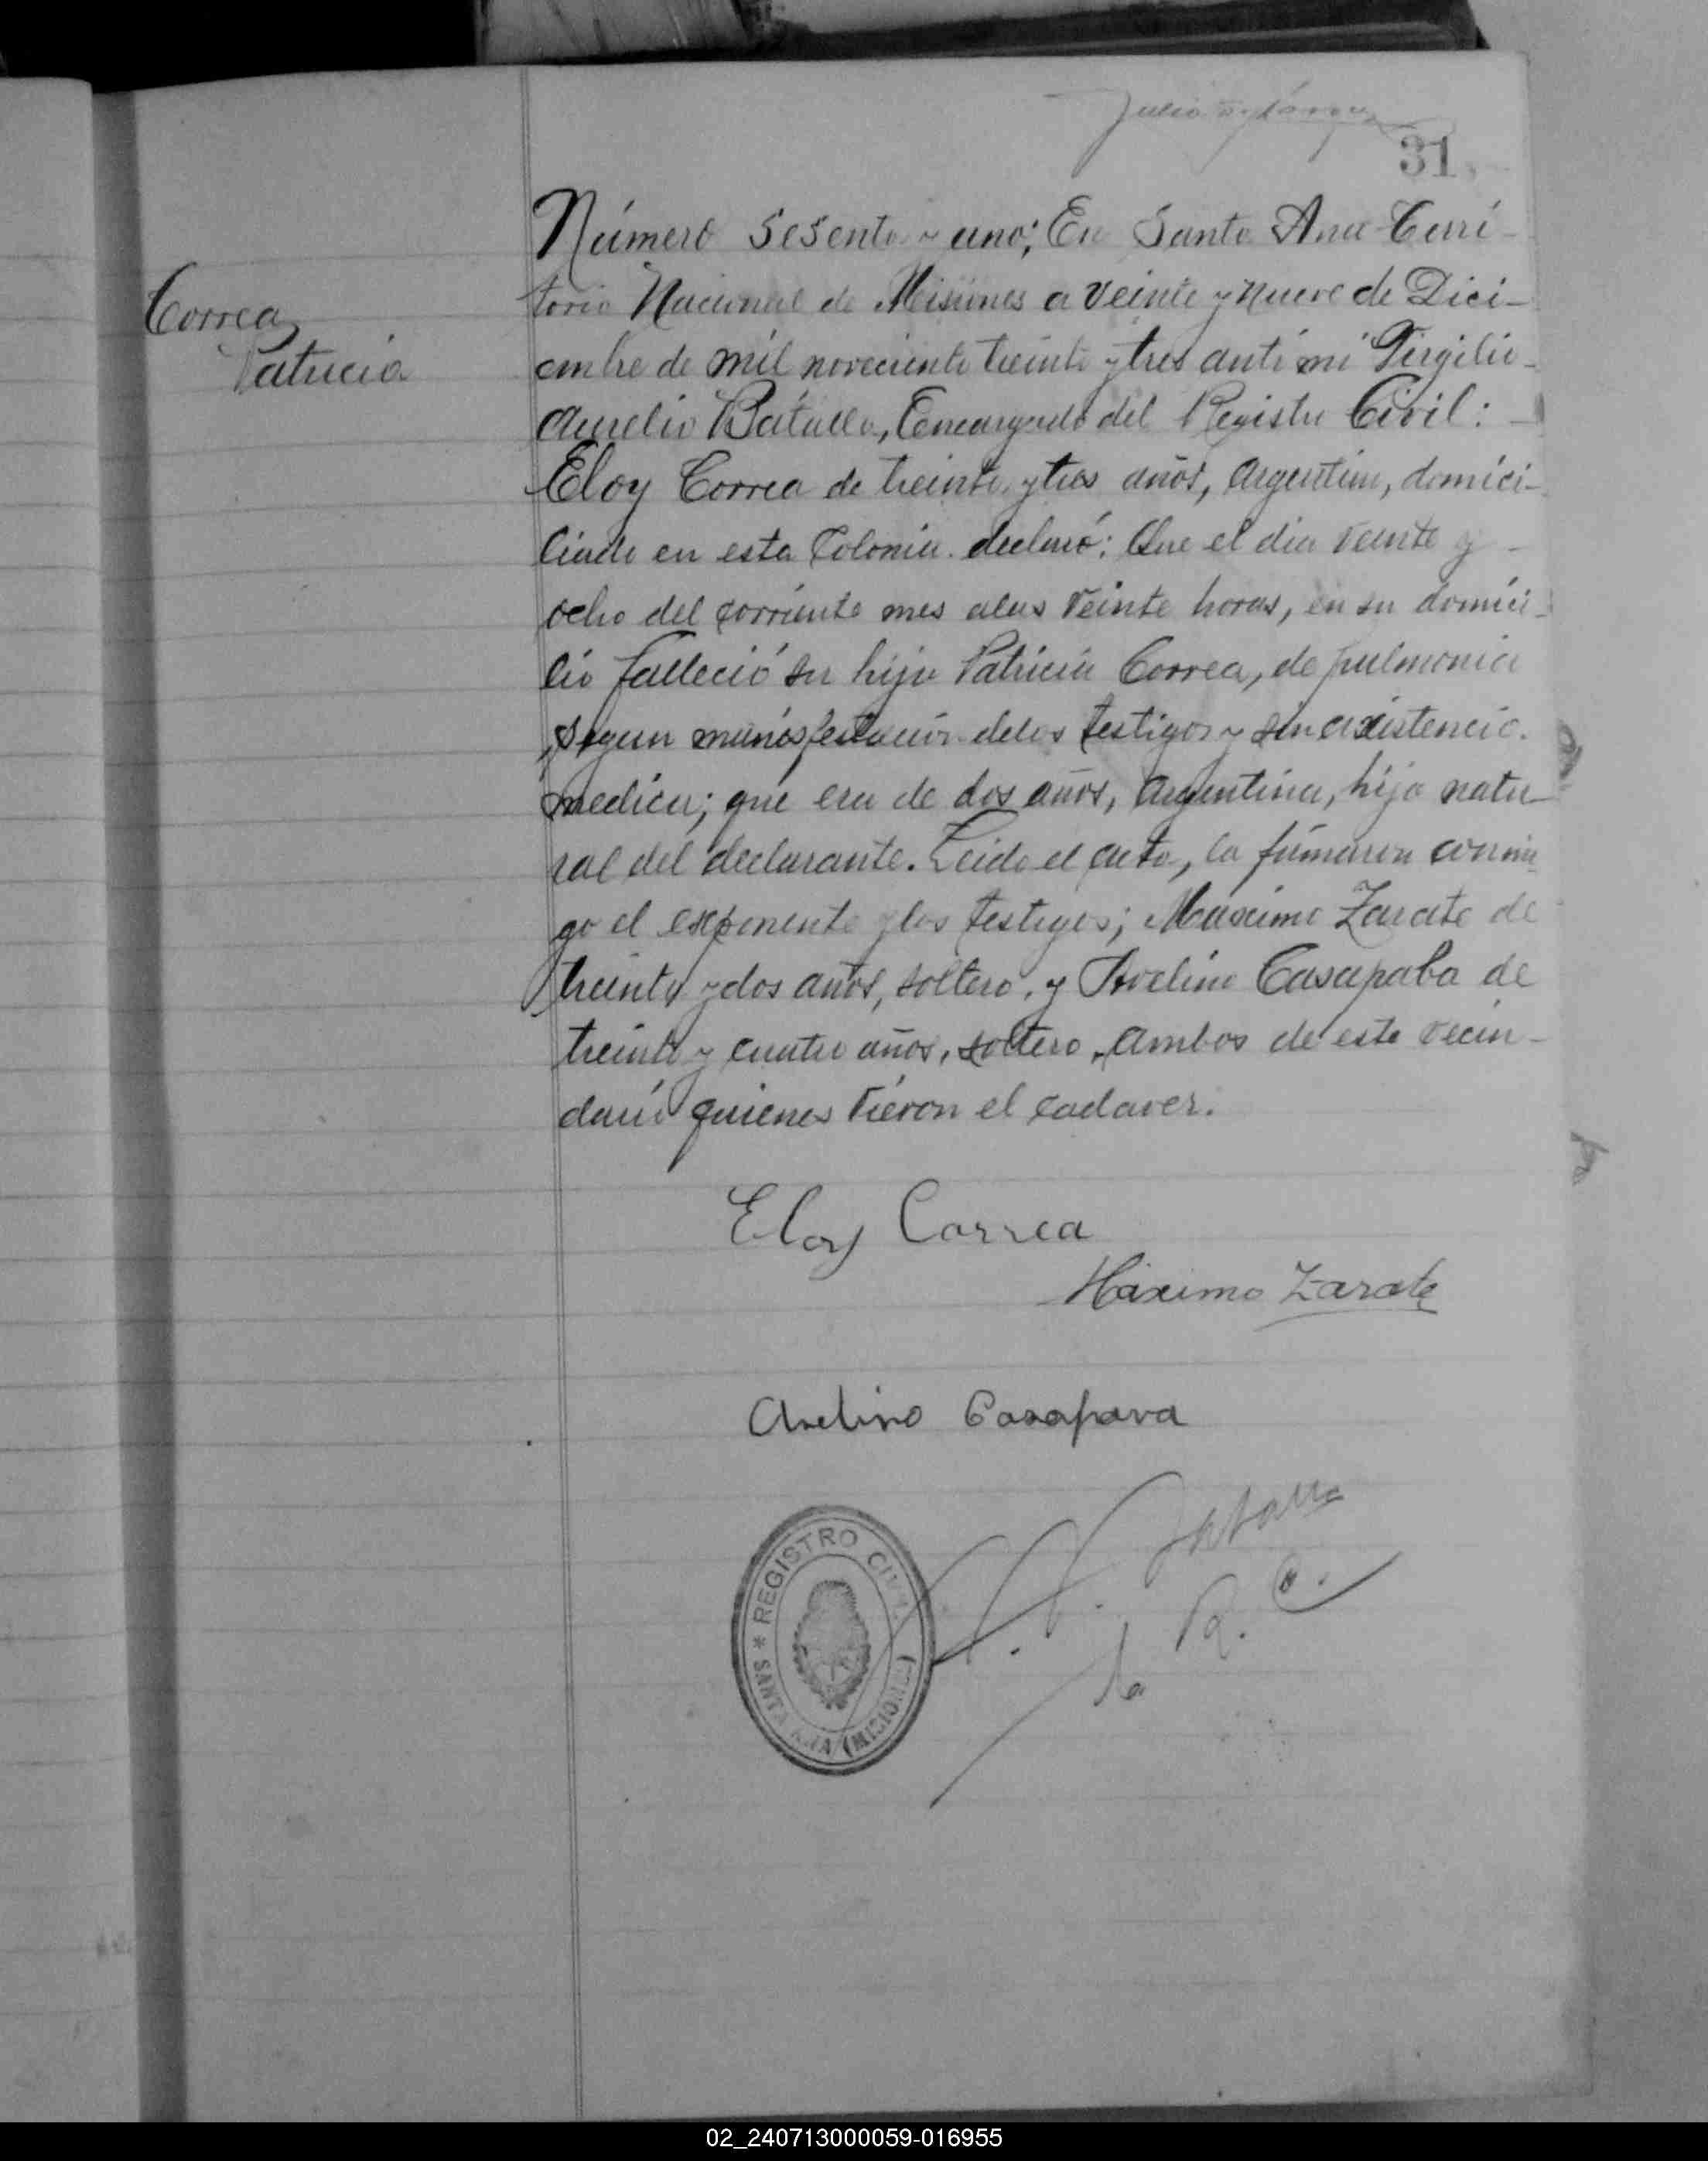 31
Correa
Patricia
Número Sesenta y uno; En Santa Ana Terri-
torio Nacional de Misiones a veinte y nueve de Dici-
embre de mil noveciento treinta y tres anti mi Virgilio
Aurelio Batalla, Encargado del Registro Civil:
Eloy Correa de treinta y tres años, Argentino, domici-
liado en esta Colonia declaró: Que el dia veinte y
ocho del corriente mes alas veinte horas, en su domici-
lio falleció su hija Patricia Correa, de pulmonia
segun manisfestación delos testigos y sin axistencia
medica; que era de dos años, Argentina, hija natu-
ral del declarante. Leida el acta, la firmaron conmi-
go el exponente y los testigos; Maximo Zarate de
treinta y dos años, soltero, y Avelino Casapaba de
treinta y cuatro años, soltero, ambos de este vecin-
dario quienes vieron el cadaver.
Eloy Correa
Máximo Zarate
Avelino Casapava
REGISTRO CIVIL
* SANTA ANA (MISIONES)
Batalla
R. C.
02_240713000059-016955